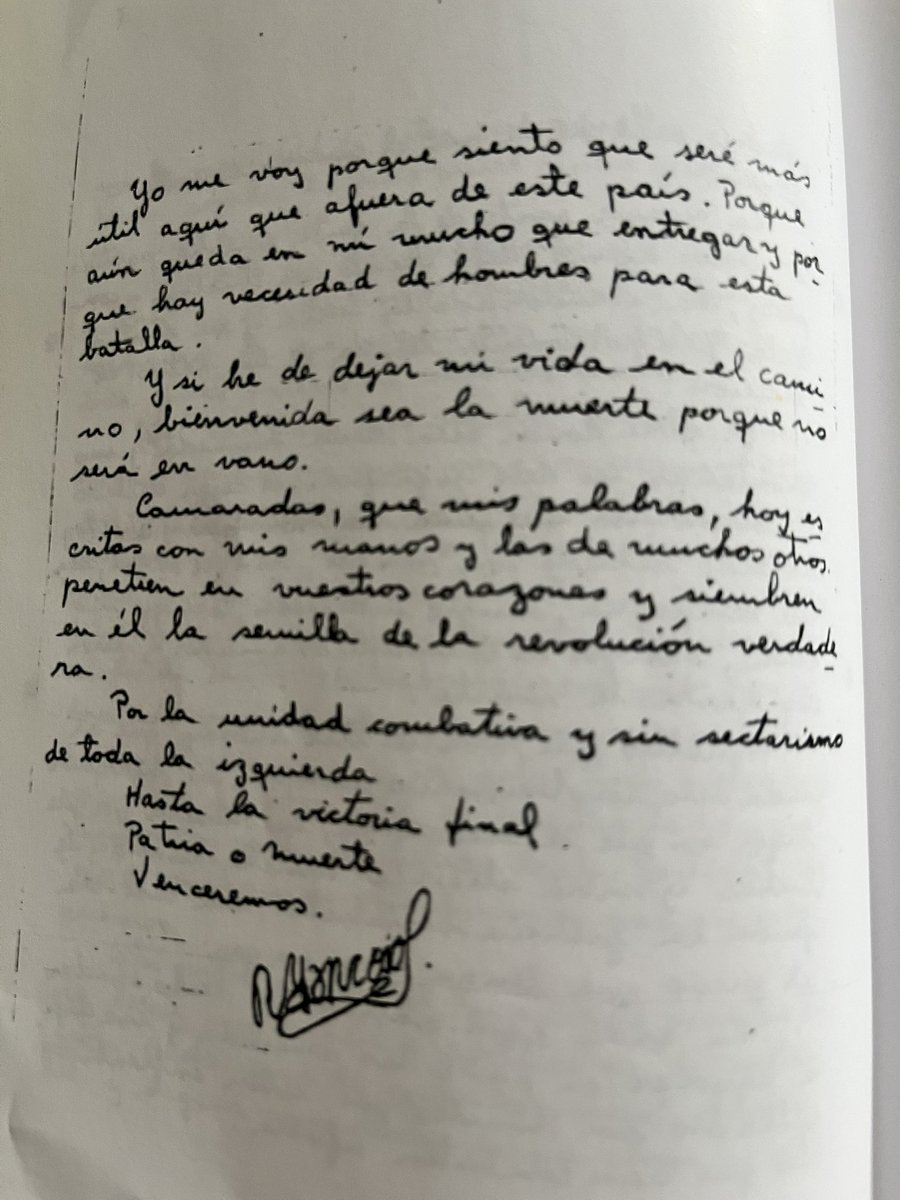 Yo me voy porque siento que seré más
útil aquí que afuera de este país. Porque
aún queda en mí mucho que entregar y por
que hay necesidad de hombres para esta
batalla.
Y si he de dejar mi vida en el cami
no, bienvenida sea la muerte porque no
será en vano.
Camaradas, que mis palabras, hoy es
critas con mis manos y las de muchos otros
penetren en vuestros corazones y siembren
en él la semilla de la revolución verdade
ra.
Por la unidad combativa y sin sectarismo
de toda la izquierda
Hasta la victoria final
Patria o muerte
Venceremos.